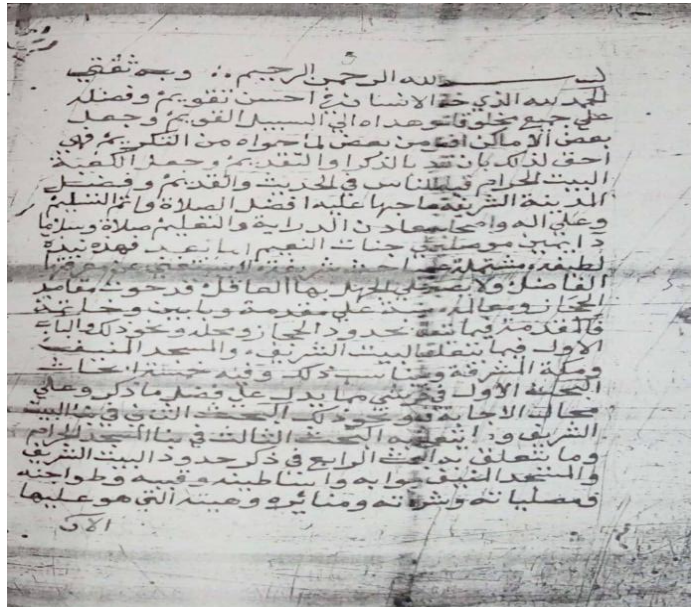 بسم الله الرحمن الرحيم وبه ثقتي
الحمد لله الذي خلق الانسان في احسن تقويم وفضله
علي جميع مخلوقاته وهداه الي السبيل القويم وجعل
بعض الاماكن افضل من بعض لما حواه من التكريم فهي
احق لذلك بان تقيد بالذكر والتقديم وجعل الكعبة
البيت الحرام قبلة للناس في الحديث والقديم وفضل
المدينة الشريفة بصاحبها عليه افضل الصلاة واتم التسليم
وعلي اله واصحابه معادن الدراية والتعليم صلاة وسلاما
دايمين موصلين الي جنات النعيم اما بعد فهذه نبذة
لطيفة مشتملة علي مباحث شريفة لا يستغني عن معرفتها
الفاضل ولا ينبغي الجهل بها العاقل
الحجاز مرتبة علي مقدمة وبابين وخاتمة
فالمقدمة فيما يتعلق بحدود الحجاز ونحو ذلك والباب
الاول فيما يتعلق بالبيت الشريف والمسجد المنيف
ومكة المشرفة وما يناسب ذلك وفيه خمسة ابحاث
البحث الاول في شيء مما يدل علي فضل ما ذكر وعلي
محالت الاجابة فيه ونحو ذلك البحث الثاني في بنا البيت
الشريف وما يتعلق به البحث الثالث في بنا المسجد الحرام
وما يتعلق به البحث الرابع في ذكر حدود البيت الشريف
والمسجد المنيف وابوابه واساطينه وقببه وطواجنه
ومصلياته وشرفاته ومنائره وهيئته التي هو عليها
الان